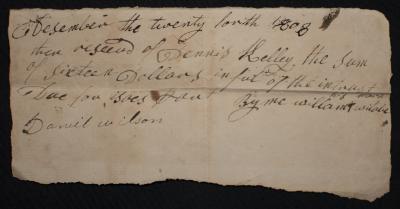 Desember the twenty forth 1808
then resevd of Dennis Kelley the sum
of sixteen Dollars in ful of the
Due for By me william
Daniel wilson